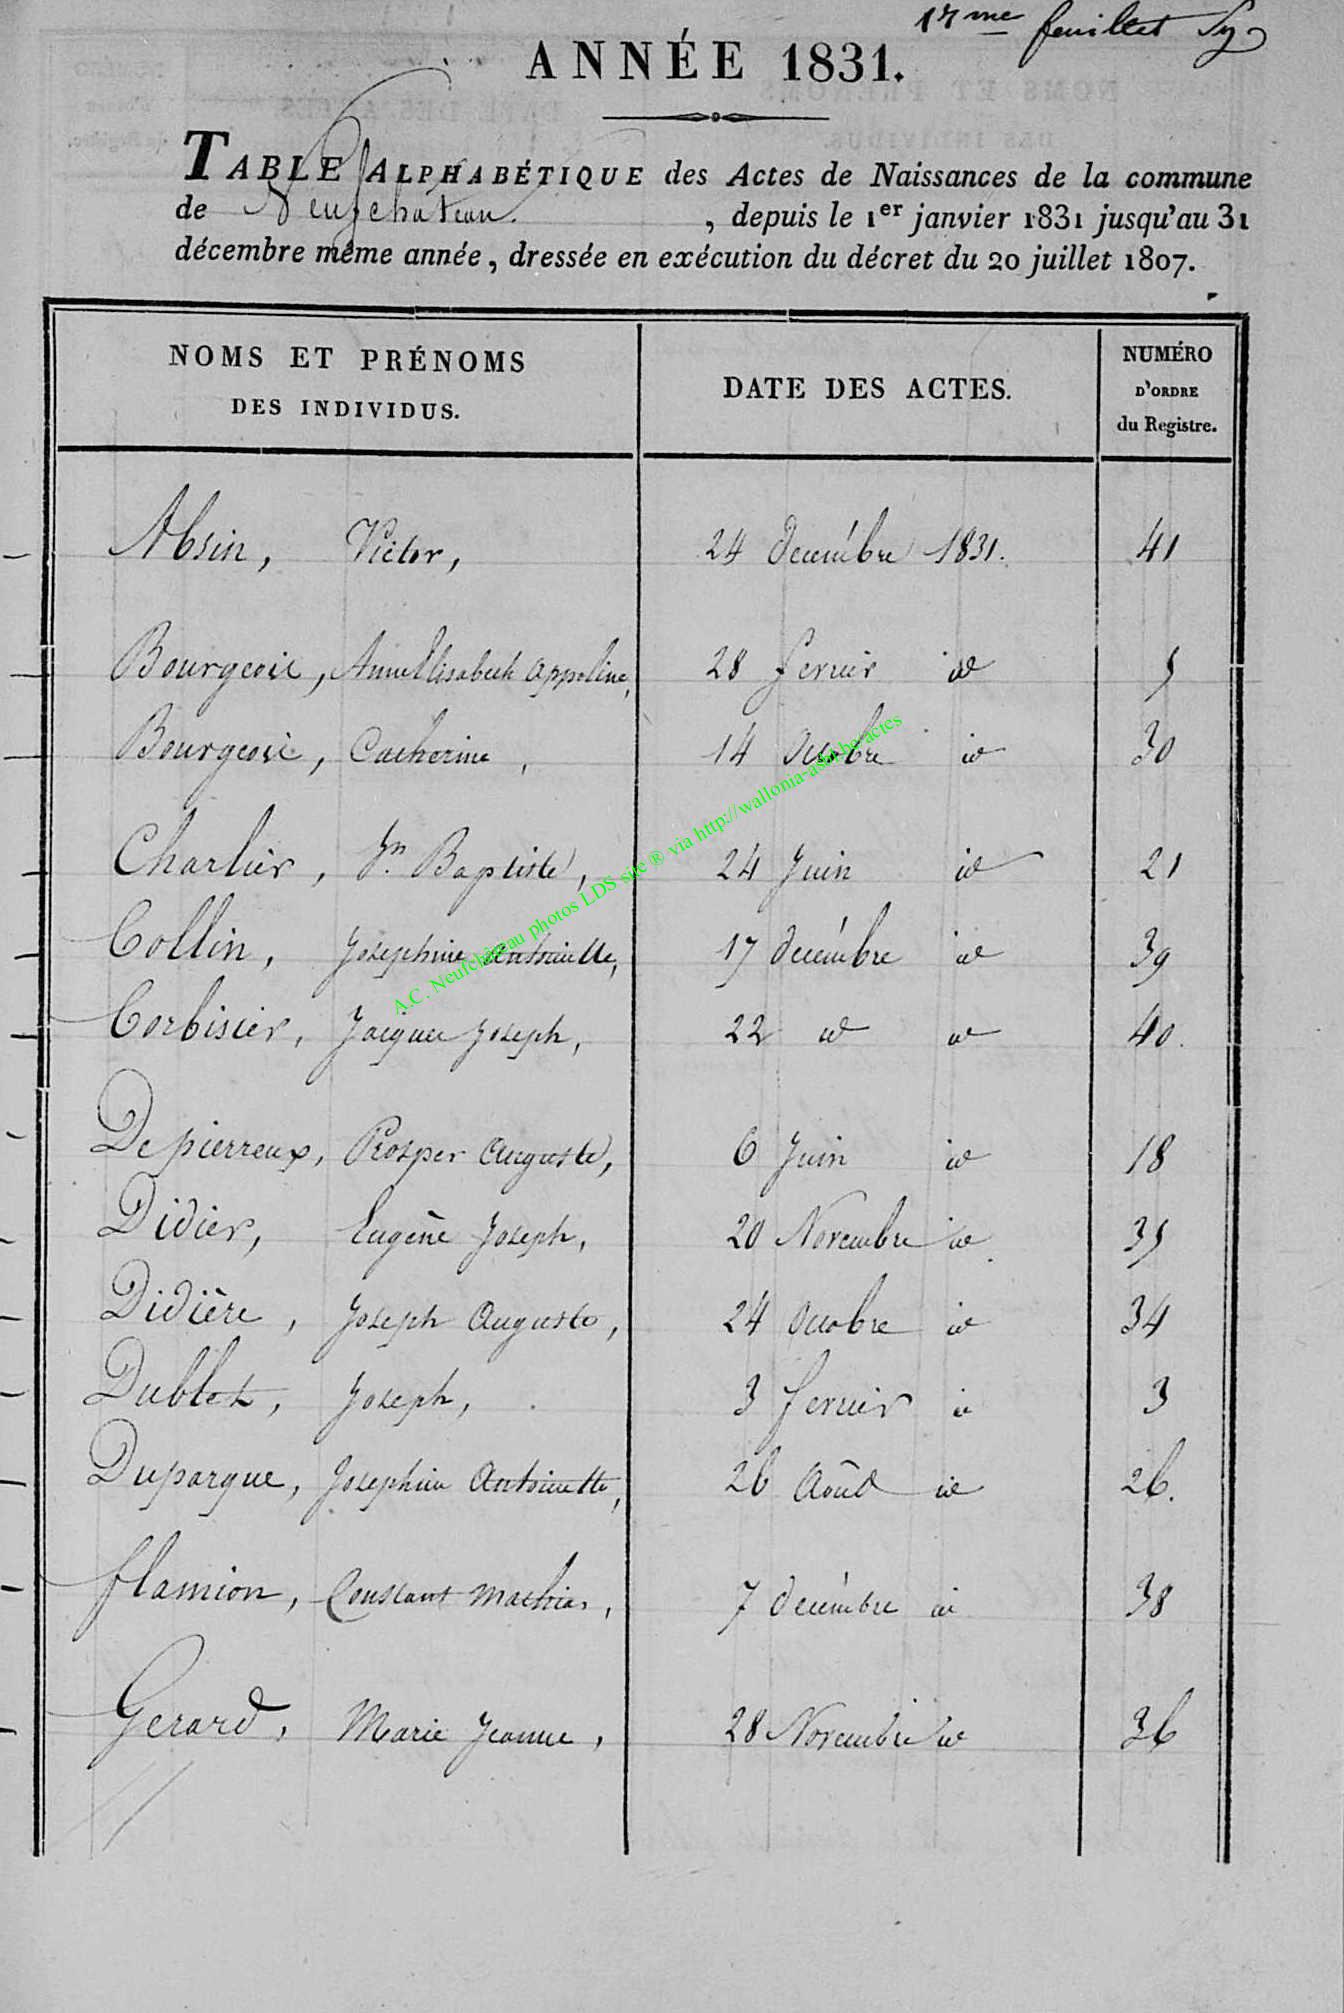 17me feuillet
ANNÉE 1831.
TABLE ALPHABÉTIQUE des Actes de Naissances de la commune
de Neufchateau , depuis le 1er janvier 1831 jusqu'au 31
décembre même année, dressée en exécution du décret du 20 juillet 1807.
NOMS ET PRÉNOMS DES INDIVIDUS. DATE DES ACTES. NUMÉRO D'ORDRE du Registre.
Absin, Victor, 24 Decembre 1831. 41
Bourgeois, Anne Elisabeth Appoline, 28 fevrier id 5
Bourgeois, Catherine, 14 Octobre id 30
Charlier, Jn. Baptiste, 24 Juin id 21
Collin, Josephine Antoinette, 17 decembre id 39
Corbisier, Jacques Joseph, 22 id id 40.
Depierreux, Prosper Auguste, 6 Juin id 18
Didier, Eugène Joseph, 20 Novembre id 35
Didière, Joseph Auguste, 24 Octobre id 34
Dublet, Joseph, 3 fevrier id 3
Dupargue, Josephine Antoinette, 26 Août id 26.
flamion, Constant Mathias, 7 decembre id 38
Gerard, Marie Jeanne, 28 Novembre id 36
A.C. Neufchâteau photos LDS site ® via http://wallonia-asbl.be/actes